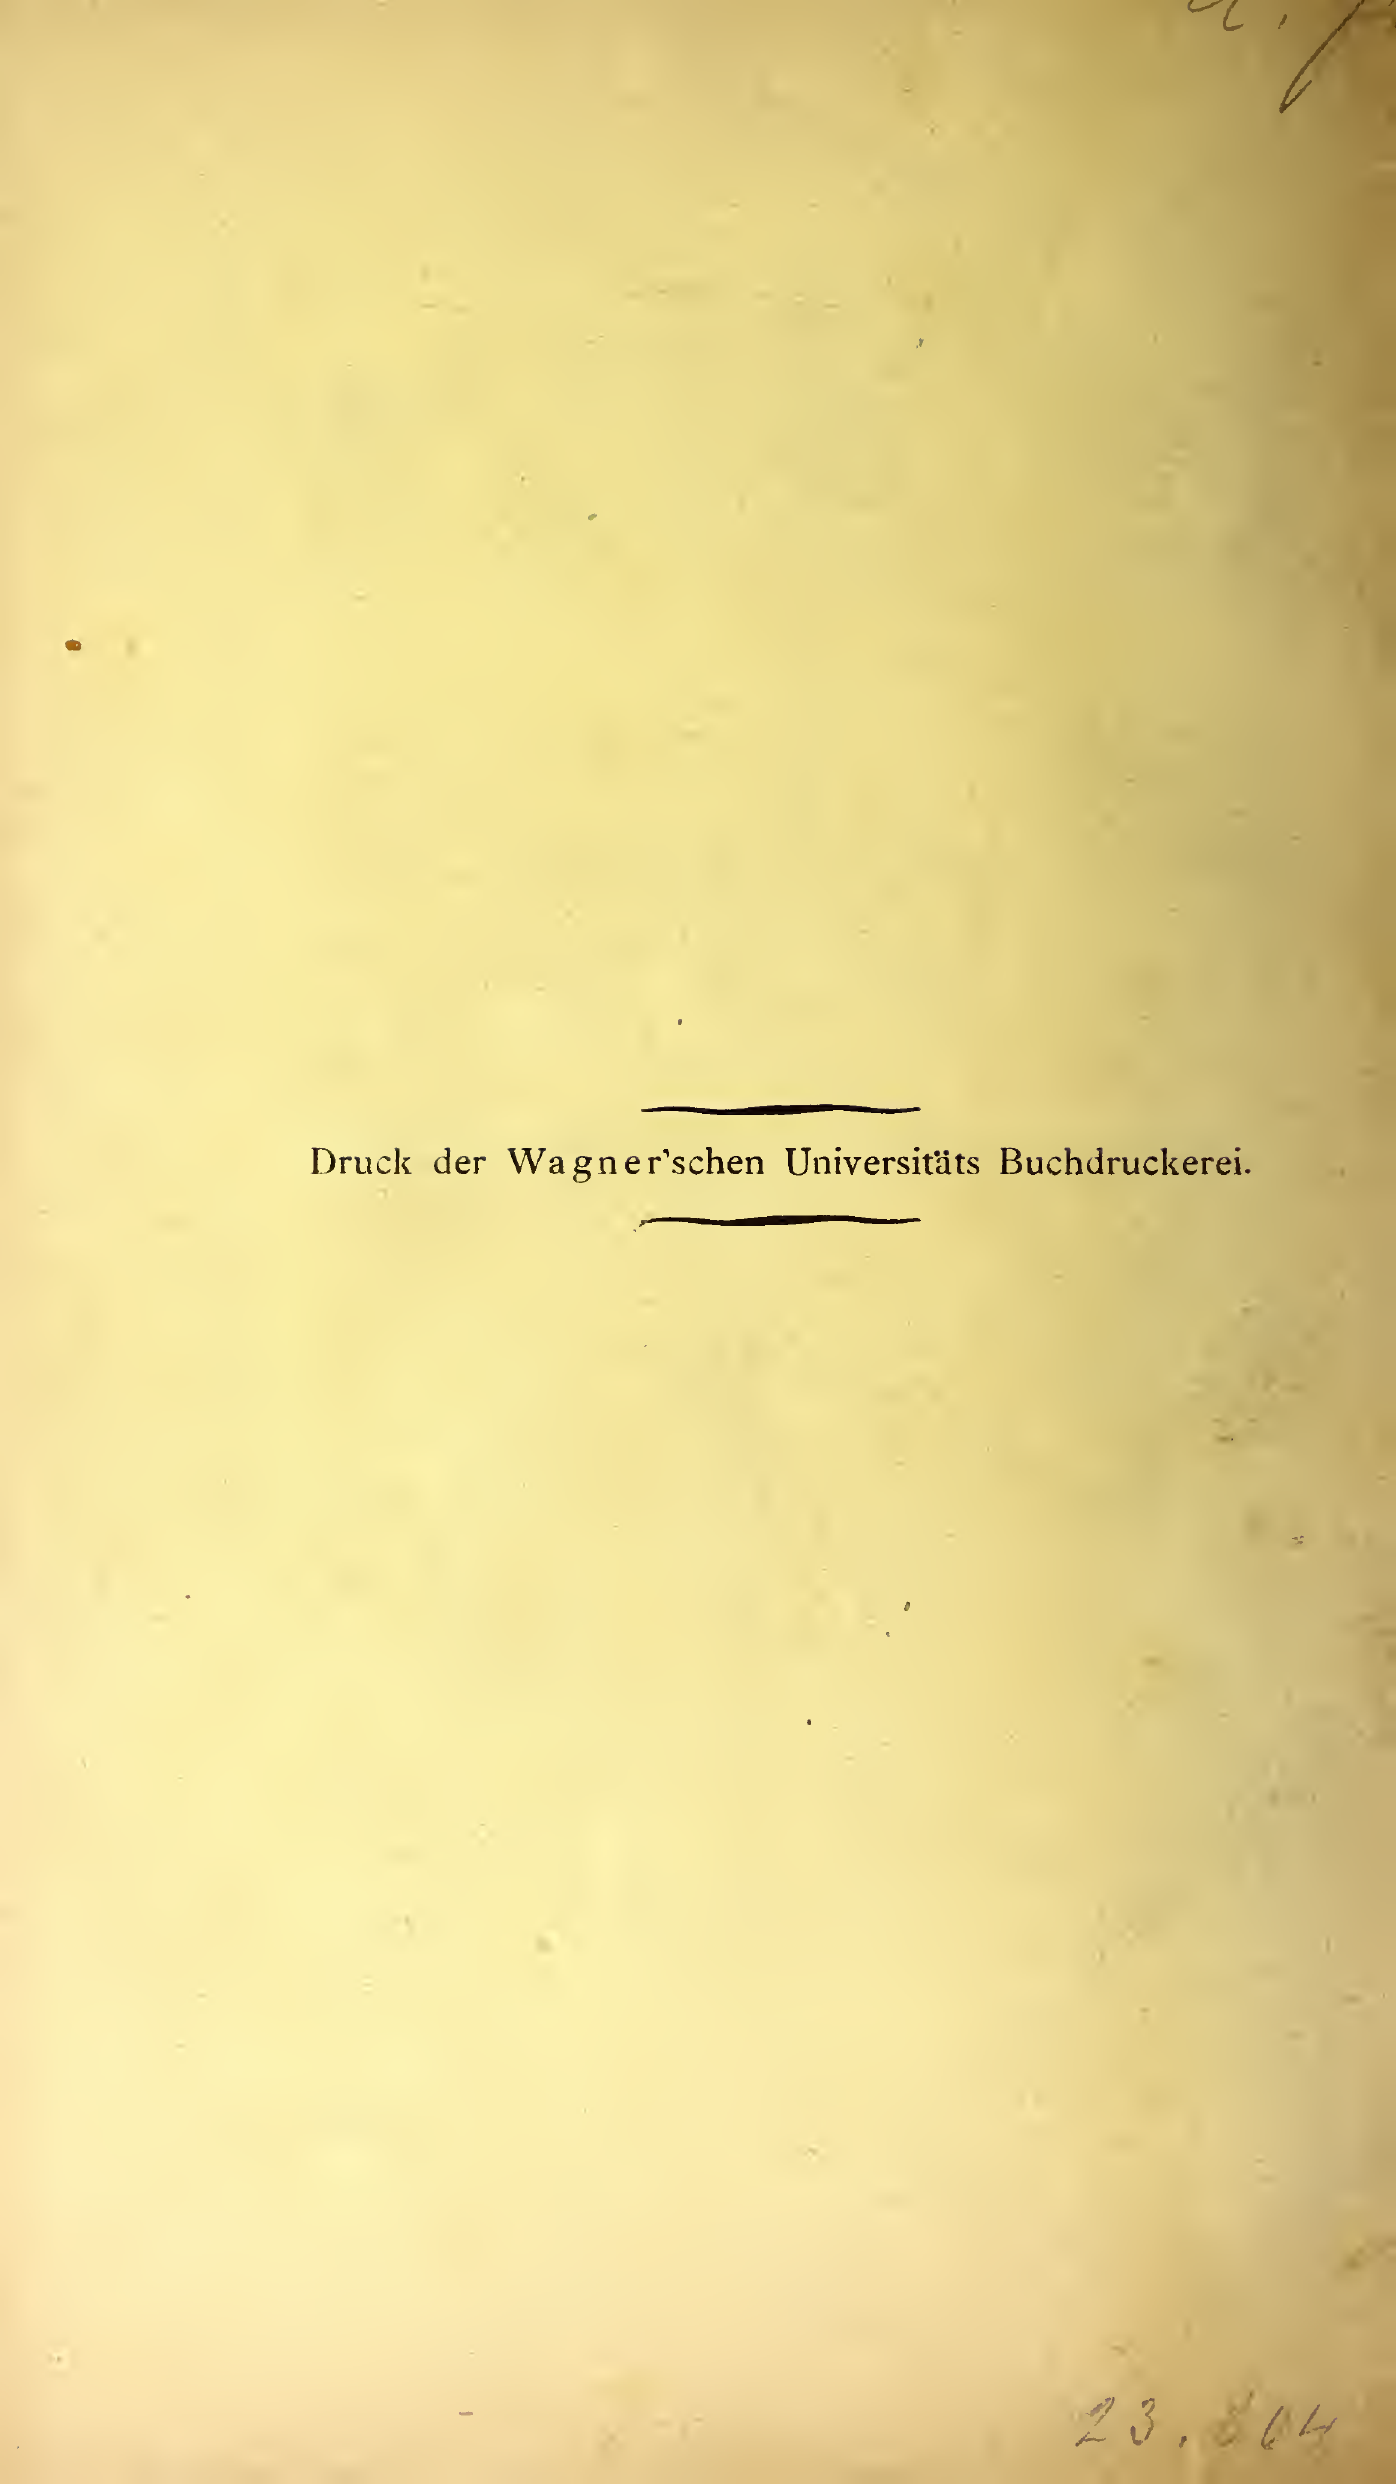 Druck der Wagner'schen Universitäts Buchdruckerei.
23.864